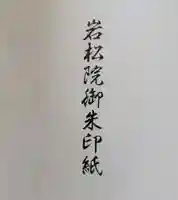 岩松院御朱印紙